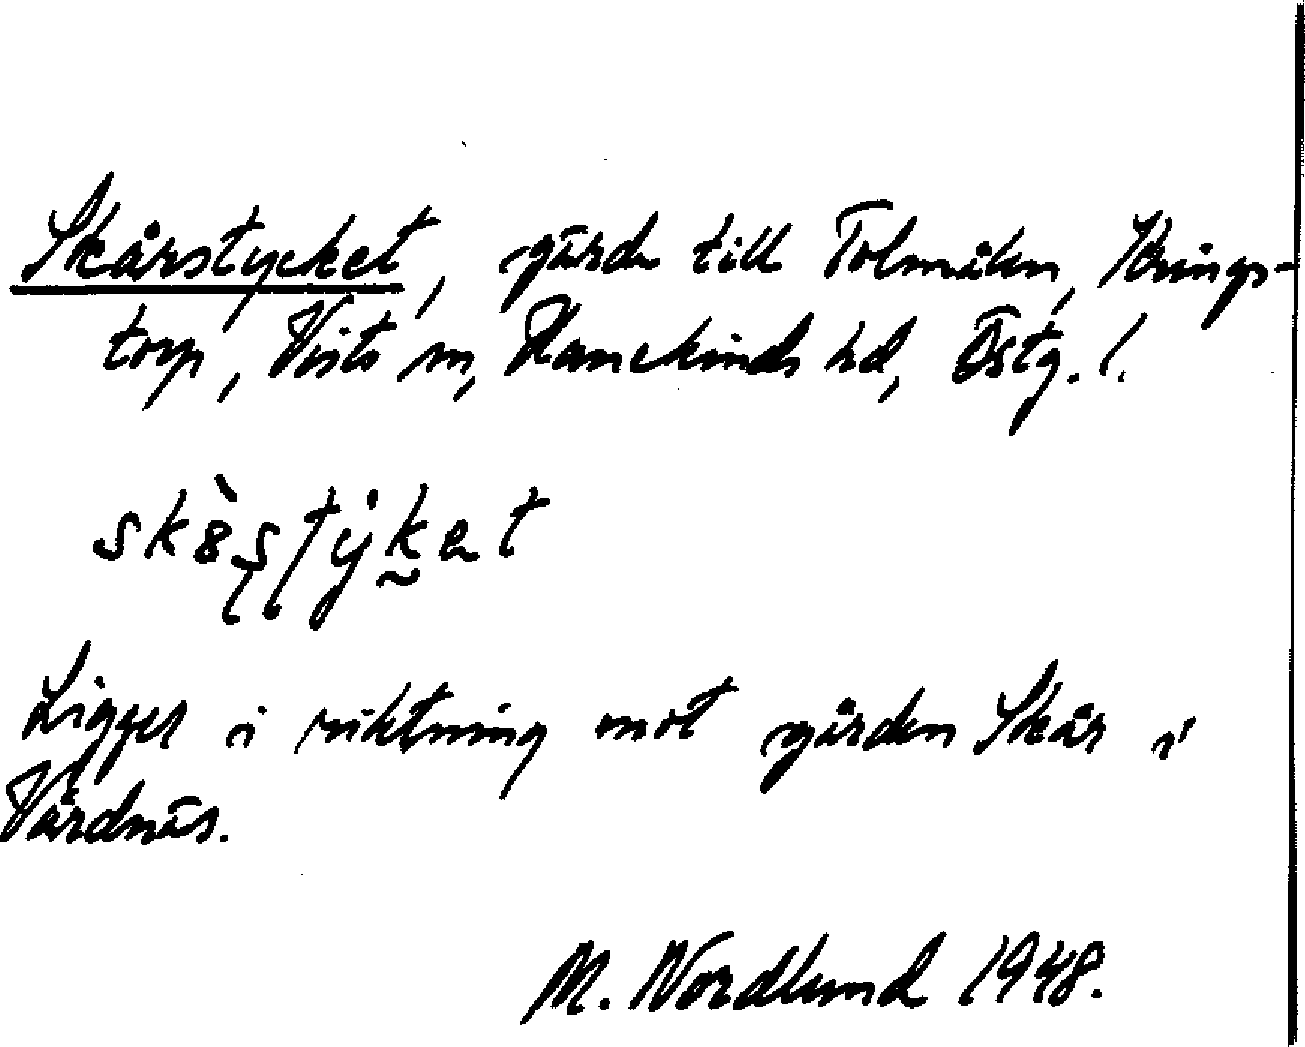 Skårstycket, gärde till Tolmålen, Krings-
torp, Vists sn, Hanekinds hd, Östg. l.
Ligger i riktning mot gården Skår i
Vårdnäs.
M. Nordlund 1948.